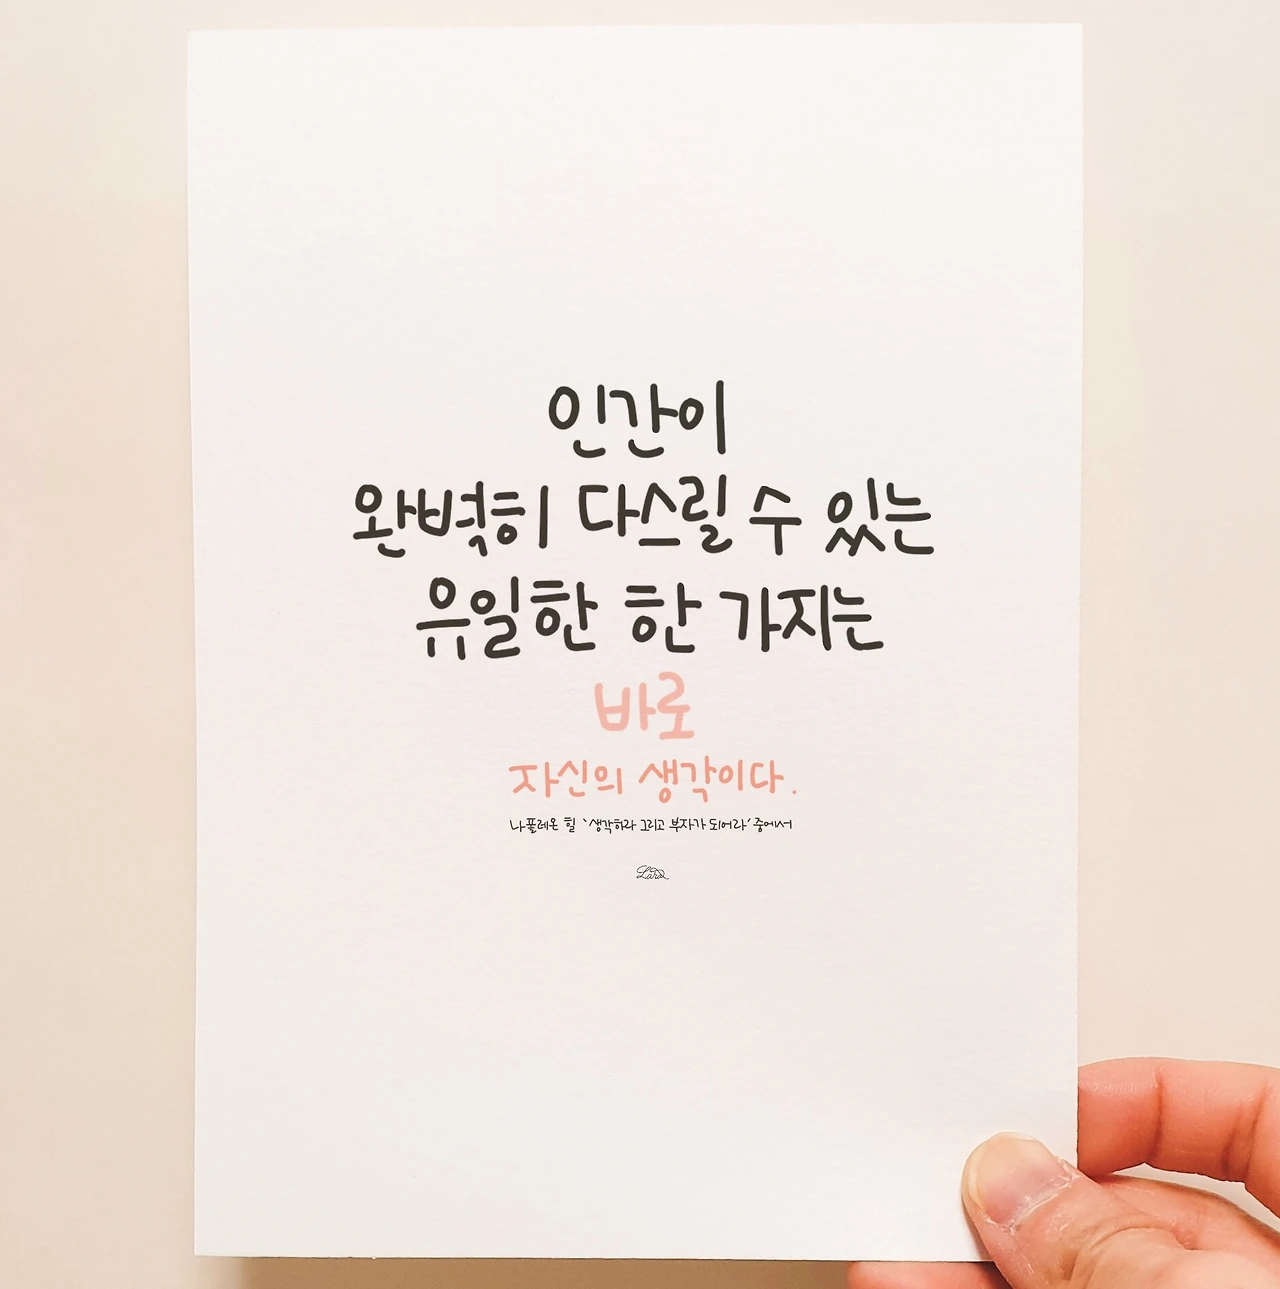 인간이
완벽히 다스릴 수 있는
유일한 한 가지는
바로
자신의 생각이다.
나폴레온 힐 '생각하라 그리고 부자가 되어라' 중에서
Lara